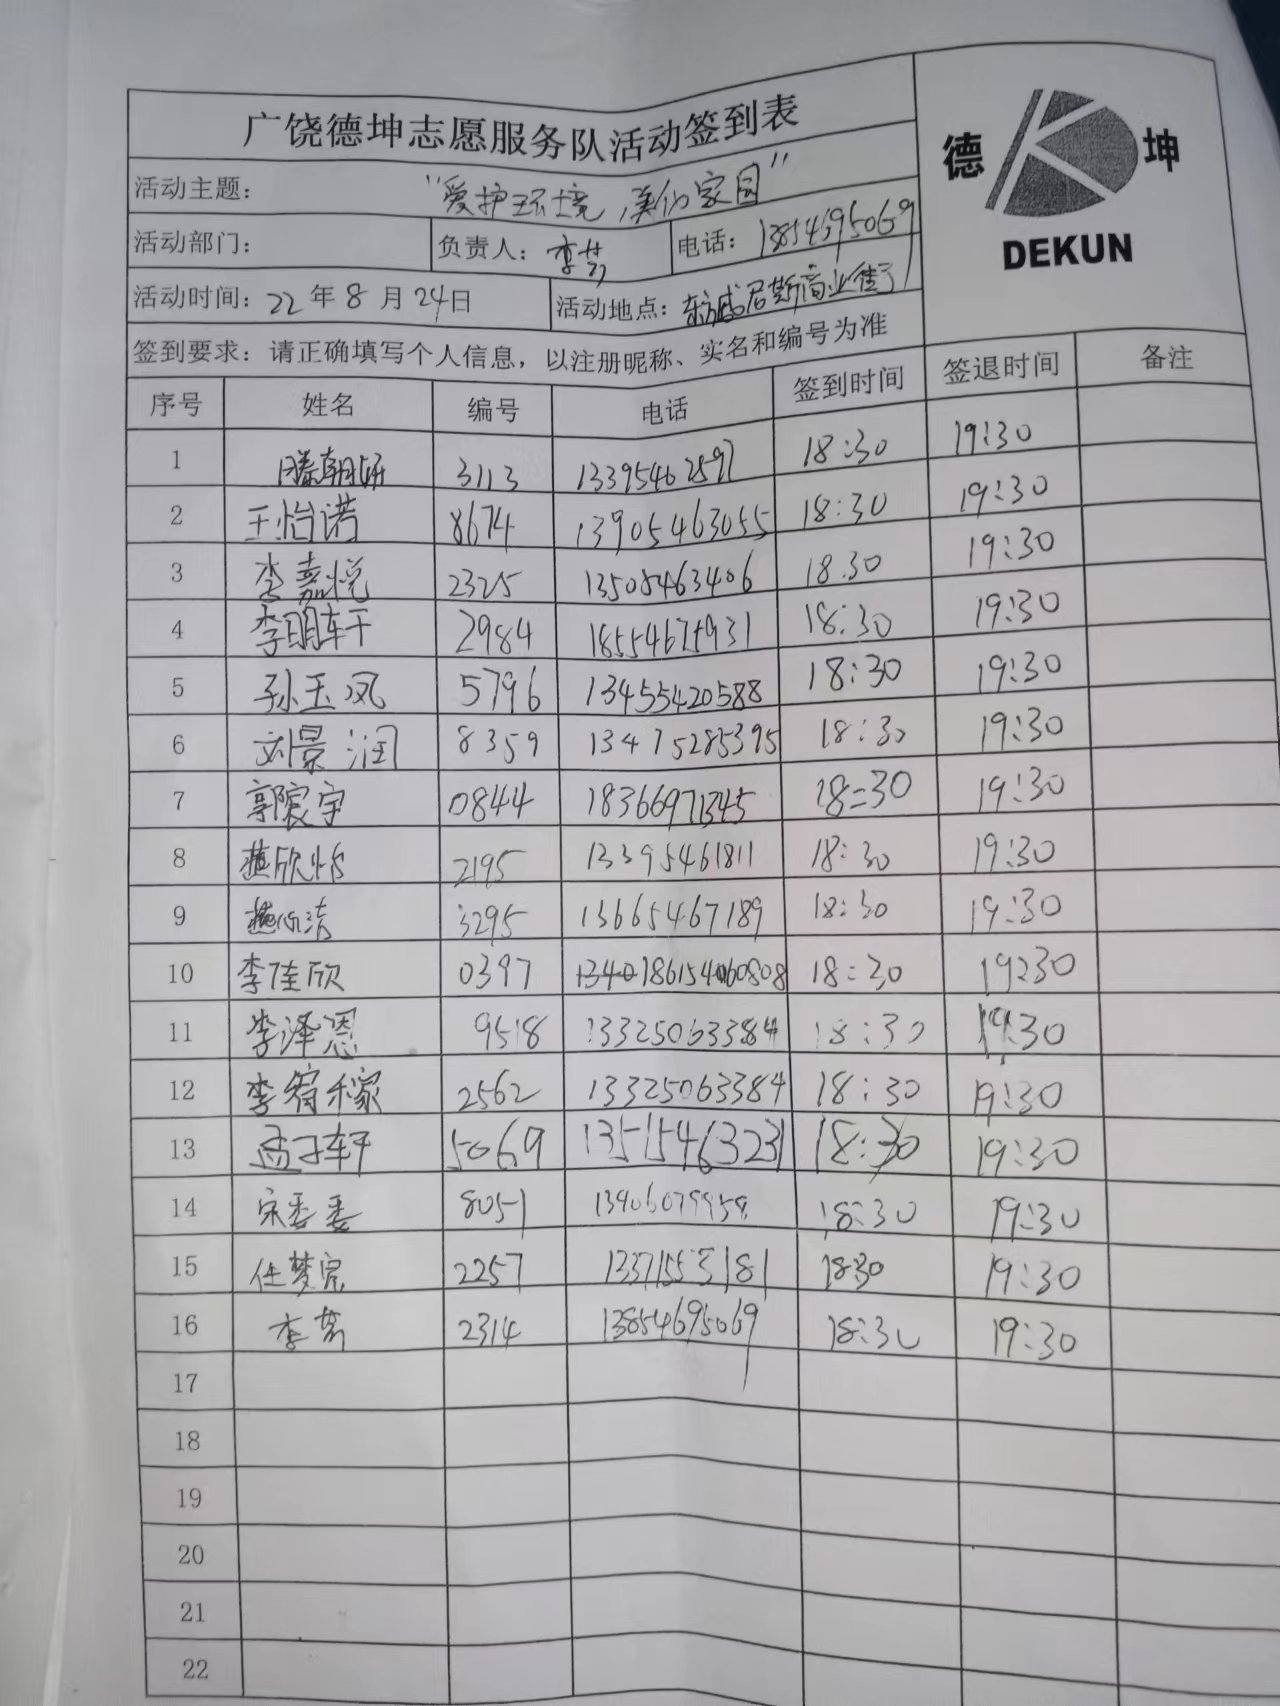 广饶德坤志愿服务队活动签到表
德 坤
DEKUN
活动主题： “爱护环境，美化家园”
活动部门： 负责人：李茗 电话：13854695069
活动时间：22年8月24日 活动地点：东方威尼斯商业街
签到要求：请正确填写个人信息，以注册昵称、实名和编号为准
序号 姓名 编号 电话 签到时间 签退时间 备注
1 滕朝妍 3113 13395462597 18:30 19:30
2 王怡诺 8674 13905463055 18:30 19:30
3 李嘉悦 2325 13505463406 18.30 19:30
4 李明轩 2984 18554675931 18:30 19:30
5 孙玉凤 5796 13455420588 18:30 19:30
6 刘景润 8359 13475285395 18:30 19:30
7 郭宸宇 0844 18366971345 18:30 19:30
8 燕欣怡 2195 13395461811 18:30 19:30
9 燕心洁 3295 13665467189 18:30 19:30
10 李佳欣 0397 186154060808 18:30 19:30
11 李泽恩 9518 13325063384 18:30 19:30
12 李 2562 13325063384 18:30 19:30
13 孟子轩 5069 13515463231 18:30 19:30
14 宋委委 8051 13406079958 18:30 19:30
15 任梦宸 2257 13371553181 18:30 19:30
16 李茗 2314 13854695069 18:30 19:30
17
18
19
20
21
22